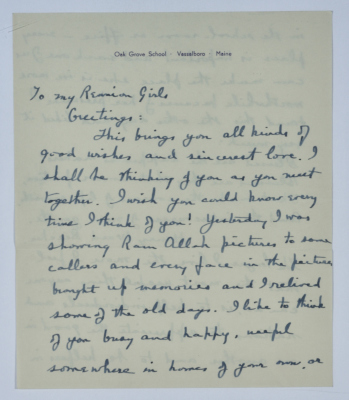 Oak Grove School · Vassalboro · Maine
To my Reunion Girls
Greetings:
This brings you all kinds of
good wishes and sincerest love. I
shall be thinking of you as you meet
together. I wish you could know every
time I think of you! Yesterday I was
showing Ram Allah pictures to some
callers and every face in the pictures
brought up memories and I relived
some of the old days. I like to think
of you busy and happy, useful
somewhere in homes of your own, or